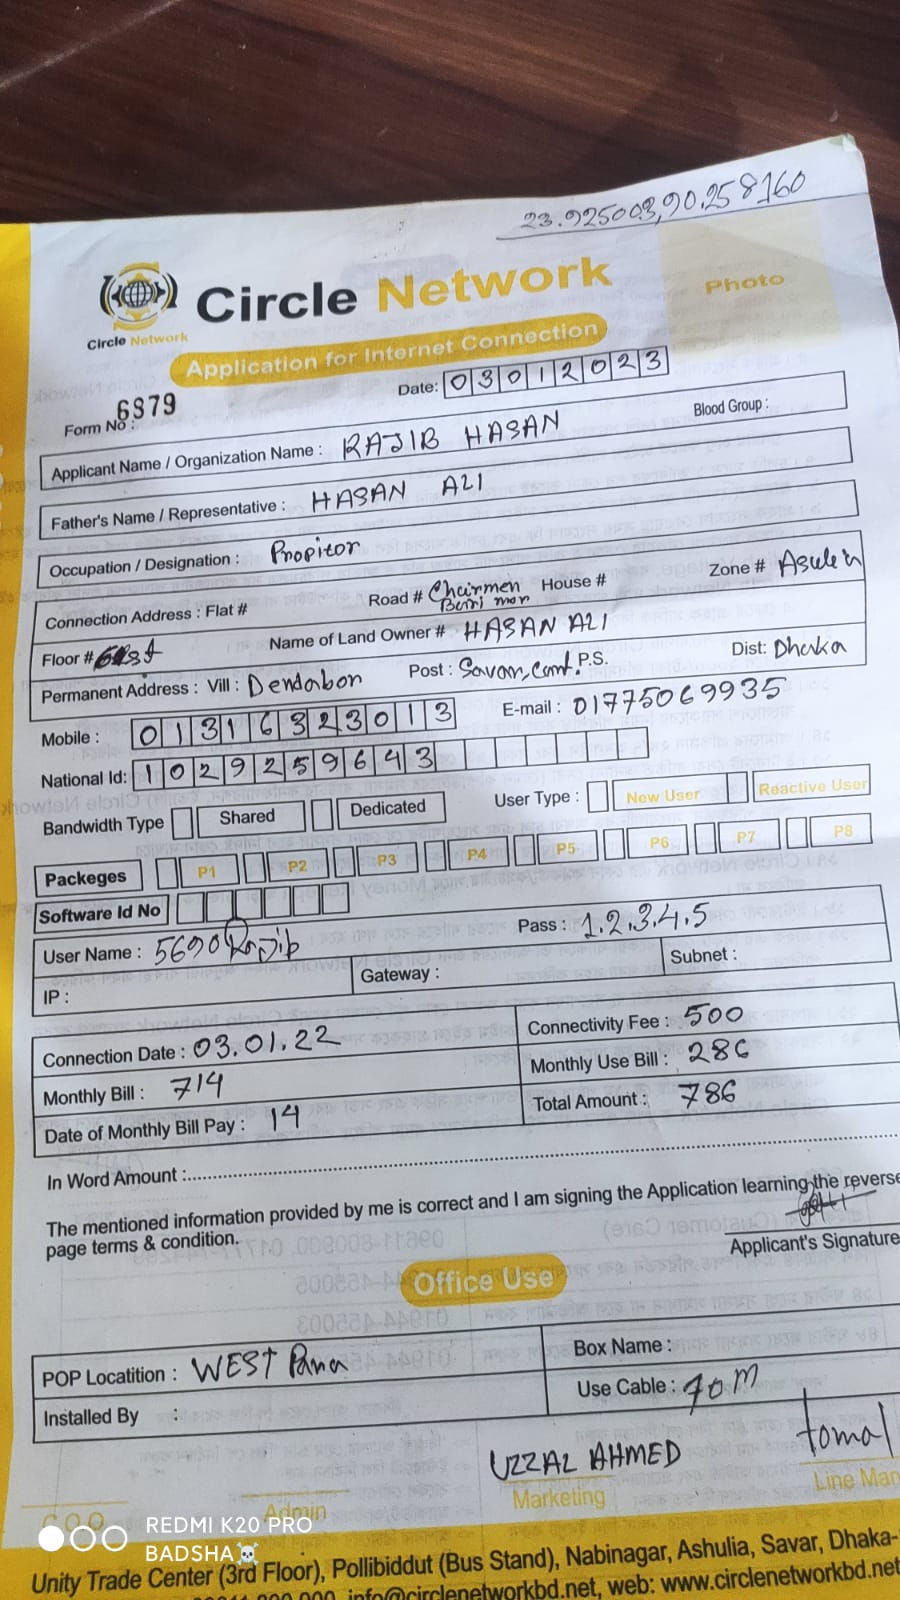 23.925003,90.258160
Circle Network
Circle Network
Photo
Application for Internet Connection
Date: 03012023
Form No : 6879
Blood Group :
Applicant Name / Organization Name : RAJIB HASAN
Father's Name / Representative : HASAN ALI
Occupation / Designation : Propitor
Connection Address : Flat # Road # Chairmen Bari mor House # Zone #
Floor # Name of Land Owner # HASAN ALI
Permanent Address : Vill : Dendabor Post : Savar, Cant. P.S: Dist: Dhaka
Mobile : 01316323013 E-mail : 01775069935
National Id: 1029259643
Bandwidth Type Shared Dedicated User Type : New User Reactive User
Packeges P1 P2 P3 P4 P5 P6 P7 P8
Software Id No
User Name : 5690Rajib Pass : 1.2.3.4.5
IP : Gateway : Subnet :
Connection Date : 03.01.22 Connectivity Fee : 500
Monthly Bill : 714 Monthly Use Bill : 286
Date of Monthly Bill Pay : 14 Total Amount : 786
In Word Amount :
The mentioned information provided by me is correct and I am signing the Application learning the reverse
page terms & condition.
Applicant's Signature
Office Use
POP Locatition : WEST Para Box Name :
Installed By : Use Cable : 70M
UZZAL AHMED tomal
C.O.O Admin Marketing Line Man
REDMI K20 PRO
BADSHA☠
Unity Trade Center (3rd Floor), Pollibiddut (Bus Stand), Nabinagar, Ashulia, Savar, Dhaka-
info@circlenetworkbd.net, web: www.circlenetworkbd.net